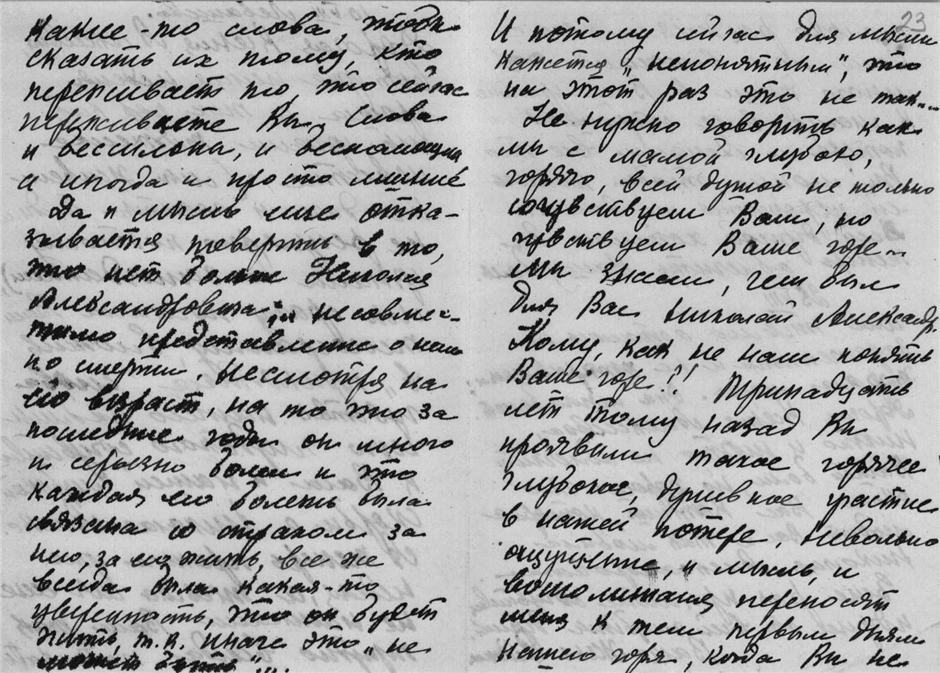 какие-то слова, чтобы
сказать их тому, кто
переживает то, что сейчас
переживаете Вы. Слова
и бессильны, и беспомощны
а иногда и просто лишние
Да и мысль еще отка-
зывается поверить в то,
что нет больше Николая
Александровича; несовме-
стимо представление о нем
по смерти. Несмотря на
его возраст, на то что за
последние годы он много
и серьезно болел и что
каждая его болезнь была
связана со страхом за
него, за его жизнь, все же
всегда была какая-то
уверенность, что он будет
жить, т.к. иначе это „не
может быть"...
23
И потому сейчас для мысли
кажется „непонятным", что
на этот раз это не так...
Не нужно говорить как
мы с мамой глубоко,
горячо, всей душой не только
сочувствуем Вам, но
чувствуем Ваше горе –
Мы знаем, чем был
для Вас Николай Александр.
Кому, как не нам понять
Ваше горе?! Тринадцать
лет тому назад Вы
проявили такое горячее
глубокое, душевное участие
в нашей потере. Невольно
ощущение, и мысль, и
воспоминания переносят
меня к тем первым дням
нашего горя, когда Вы не